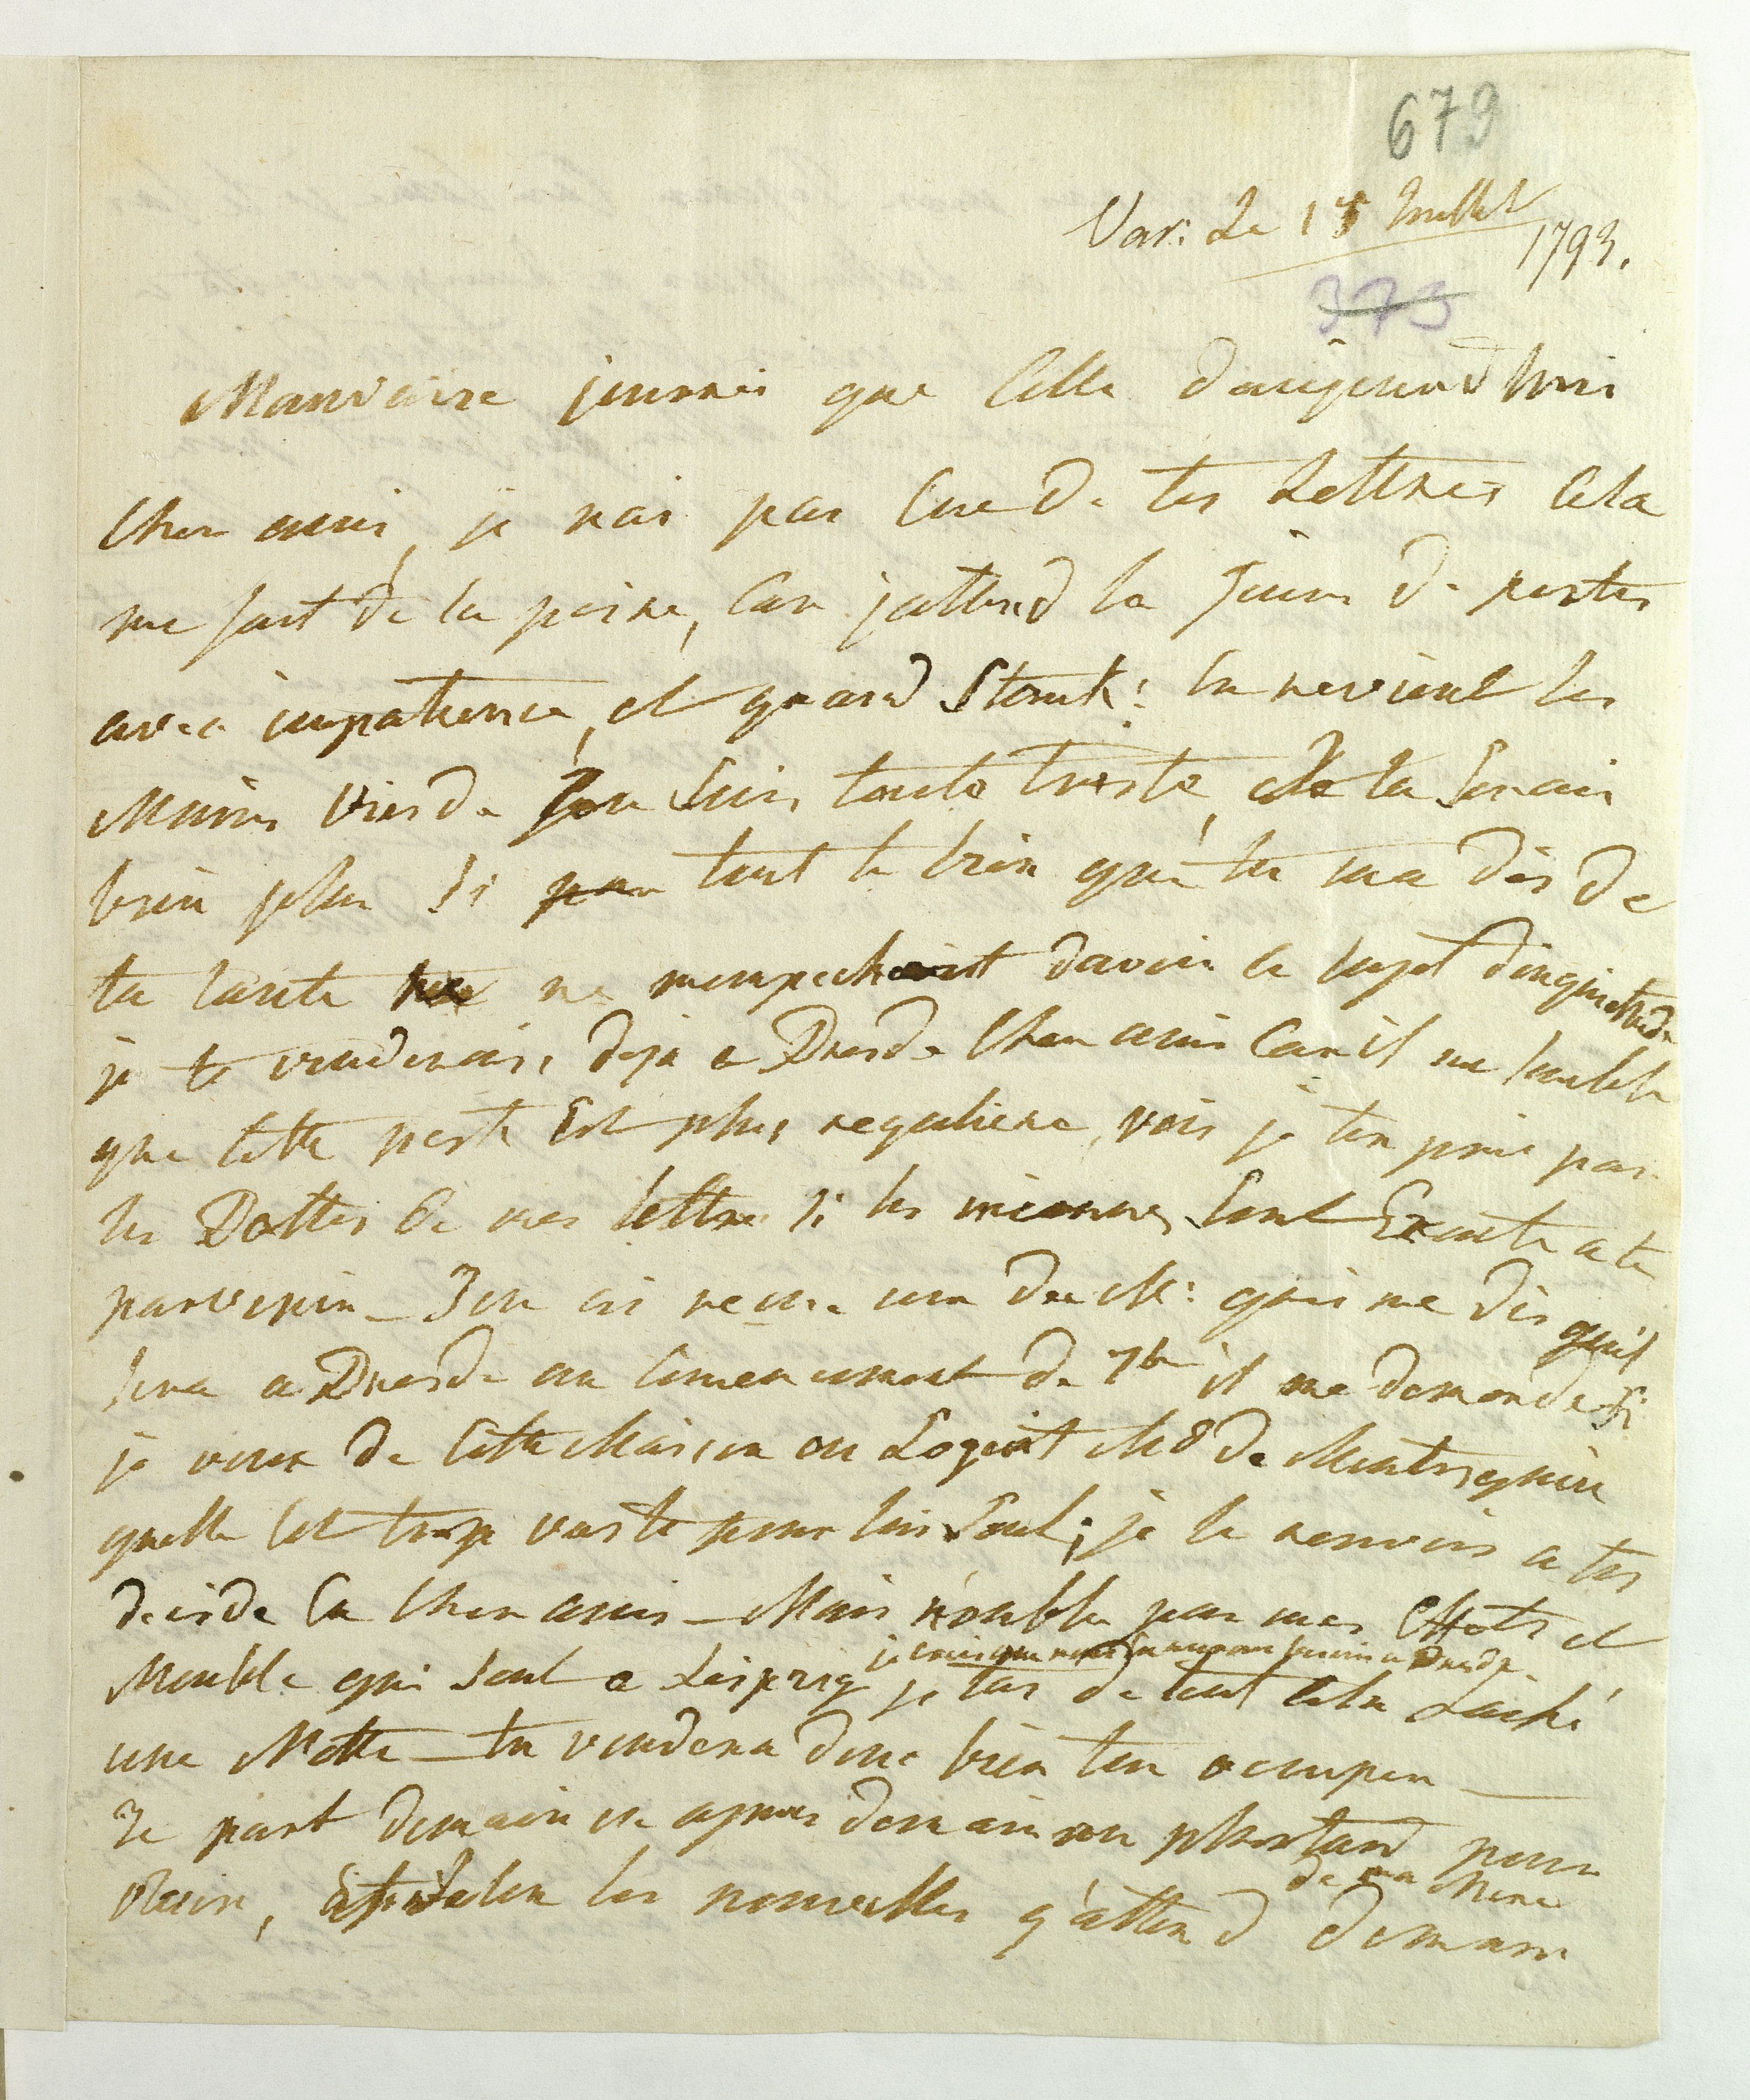 679
Var: Le 15 Juillet
1793.
373
Mauvaise journeé que Celle daujourd'huis
Cher amis, je nais pas Eue de tes Lettres Cela
me fait de la peine, Car jattend la jours de postes
avec impatience, et quand Stouk: En revient les
Mains Viesde jen Suis toute triste, et la Serais
bien plus Si tout le bien que tu ma dis de
ta Sante ne mempechoit davoir ce sujet dinquietude
je te voudrais, deja a Dresde Cher amis Car il me semble
que Cette poste Est plus reguliere, vois je ten prie par
les Dattes de mes lettres Si les miennes Sont Exacte a te
parvenir _ Jen ai recue une de M: qui me dis quil
Sera a Dresde au Comencement de 7bre il me demande Si
je veux de Cette Maison ou Logoit Md de Montregnin
quelle Est trop vaste pour lui Seul; je le renvois a toi
decide En Cher amis _ Mais n'oublie pas mes Effets et
je crois que nous en aurons besoin a Dresde _
Meuble qui Sont a Leipzig je tais de tout Cela Laisé
une Notte _ tu voudera donc bien ten occuper _
Je part demain ou apres demain au plustard pour
de ma Mere
, Selon les nouvelles q'attend demain